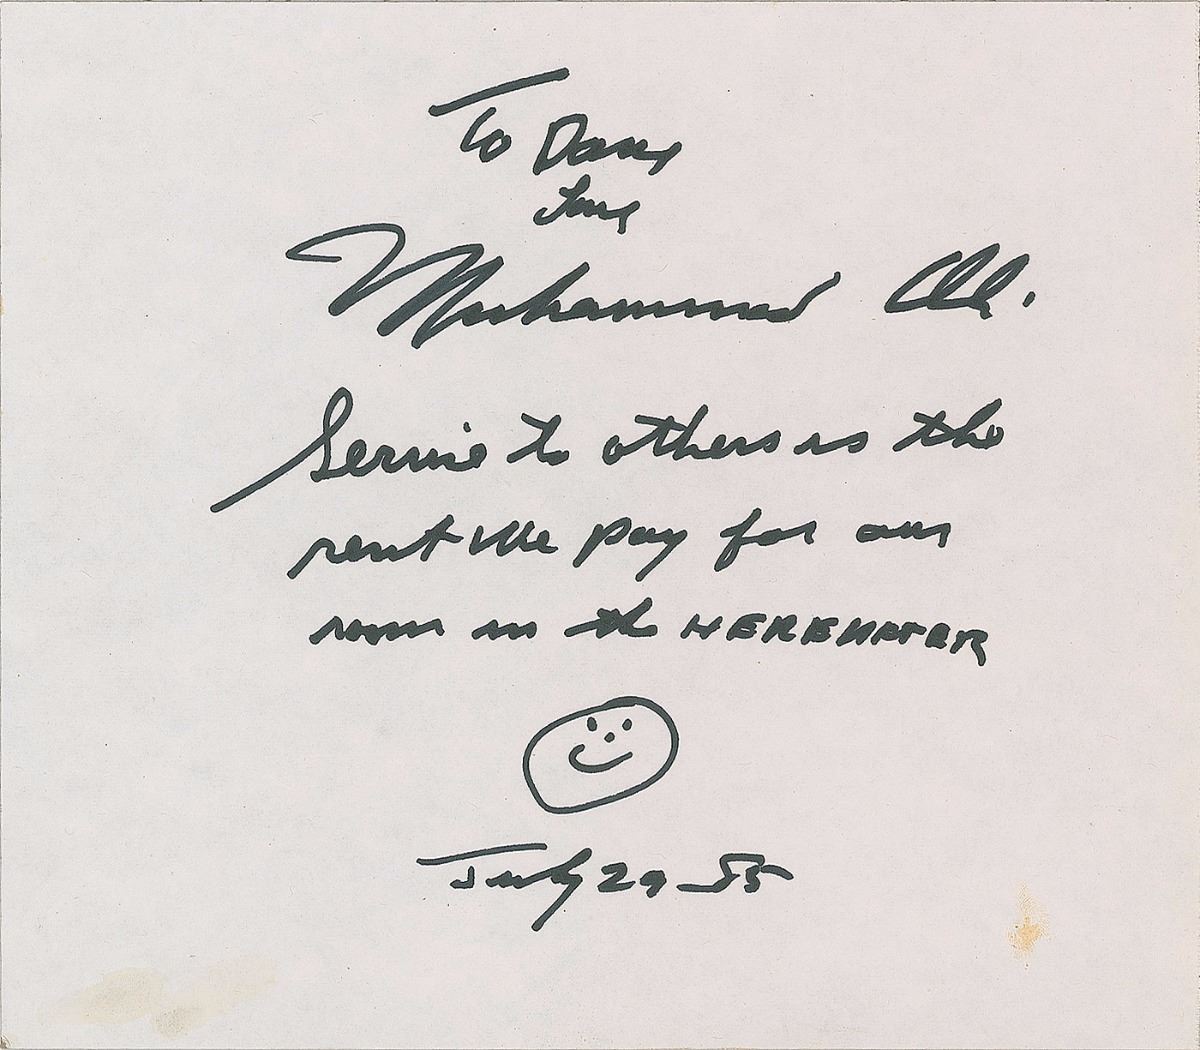 To Dave
Love
Muhammad Ali.
Service to others is the
rent We pay for our
room in the HEREAFTER
July 29 85